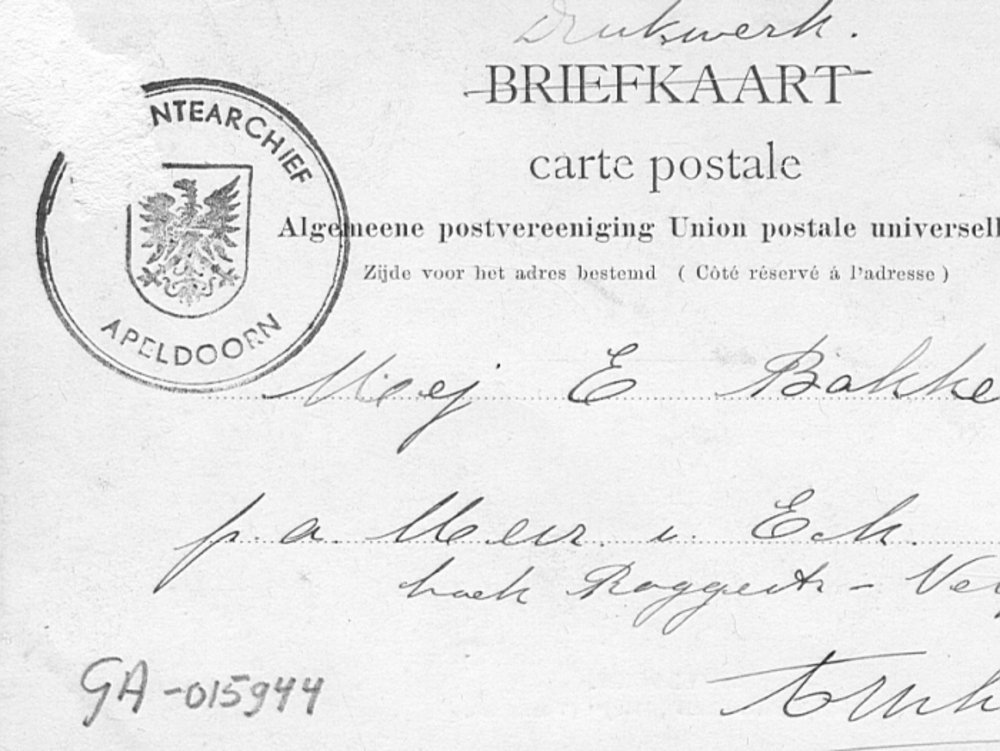 Drukwerk.
BRIEFKAART
carte postale
Algemeene postvereeniging Union postale universell
Zijde voor het adres bestemd ( Côté réservé á l'adresse )
NTEARCHIEF
APELDOORN
Mej E Bakke
p. a. Mevr. v. Eck.
hoek Roggestr - Ve
GA-015944